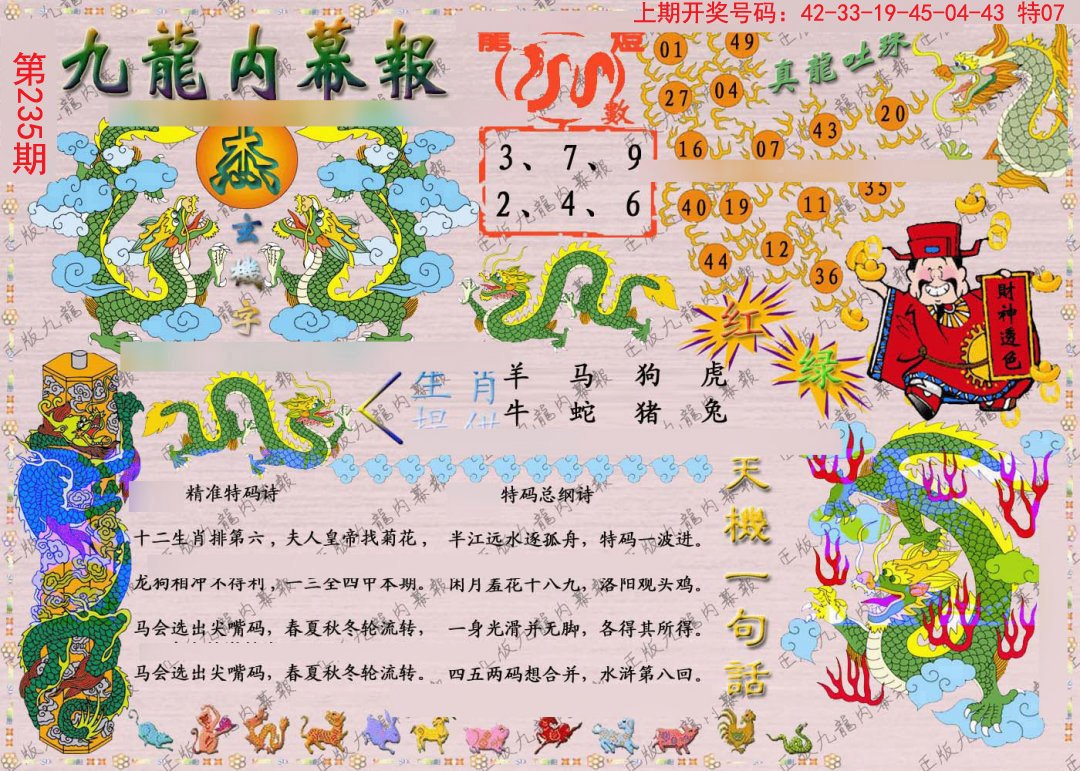 上期开奖号码：42-33-19-45-04-43 特07
第235期
九龍内幕報
龍
數
3、7、9
2、4、6
真龍吐珠
01
49
27
04
20
43
16
07
35
40
19
11
12
44
36
玄
機
字
红
绿
財神透色
生肖
羊 马 狗 虎
牛 蛇 猪 兔
精准特码诗
十二生肖排第六，夫人皇帝找菊花，
龙狗相冲不得利，一三全四甲本期。
马会选出尖嘴码，春夏秋冬轮流转，
马会选出尖嘴码，春夏秋冬轮流转。
特码总纲诗
半江远水逐孤舟，特码一波进。
闲月羞花十八九，洛阳观头鸡。
一身光滑并无脚，各得其所得。
四五两码想合并，水浒第八回。
天機一句話
正版九龍内幕報